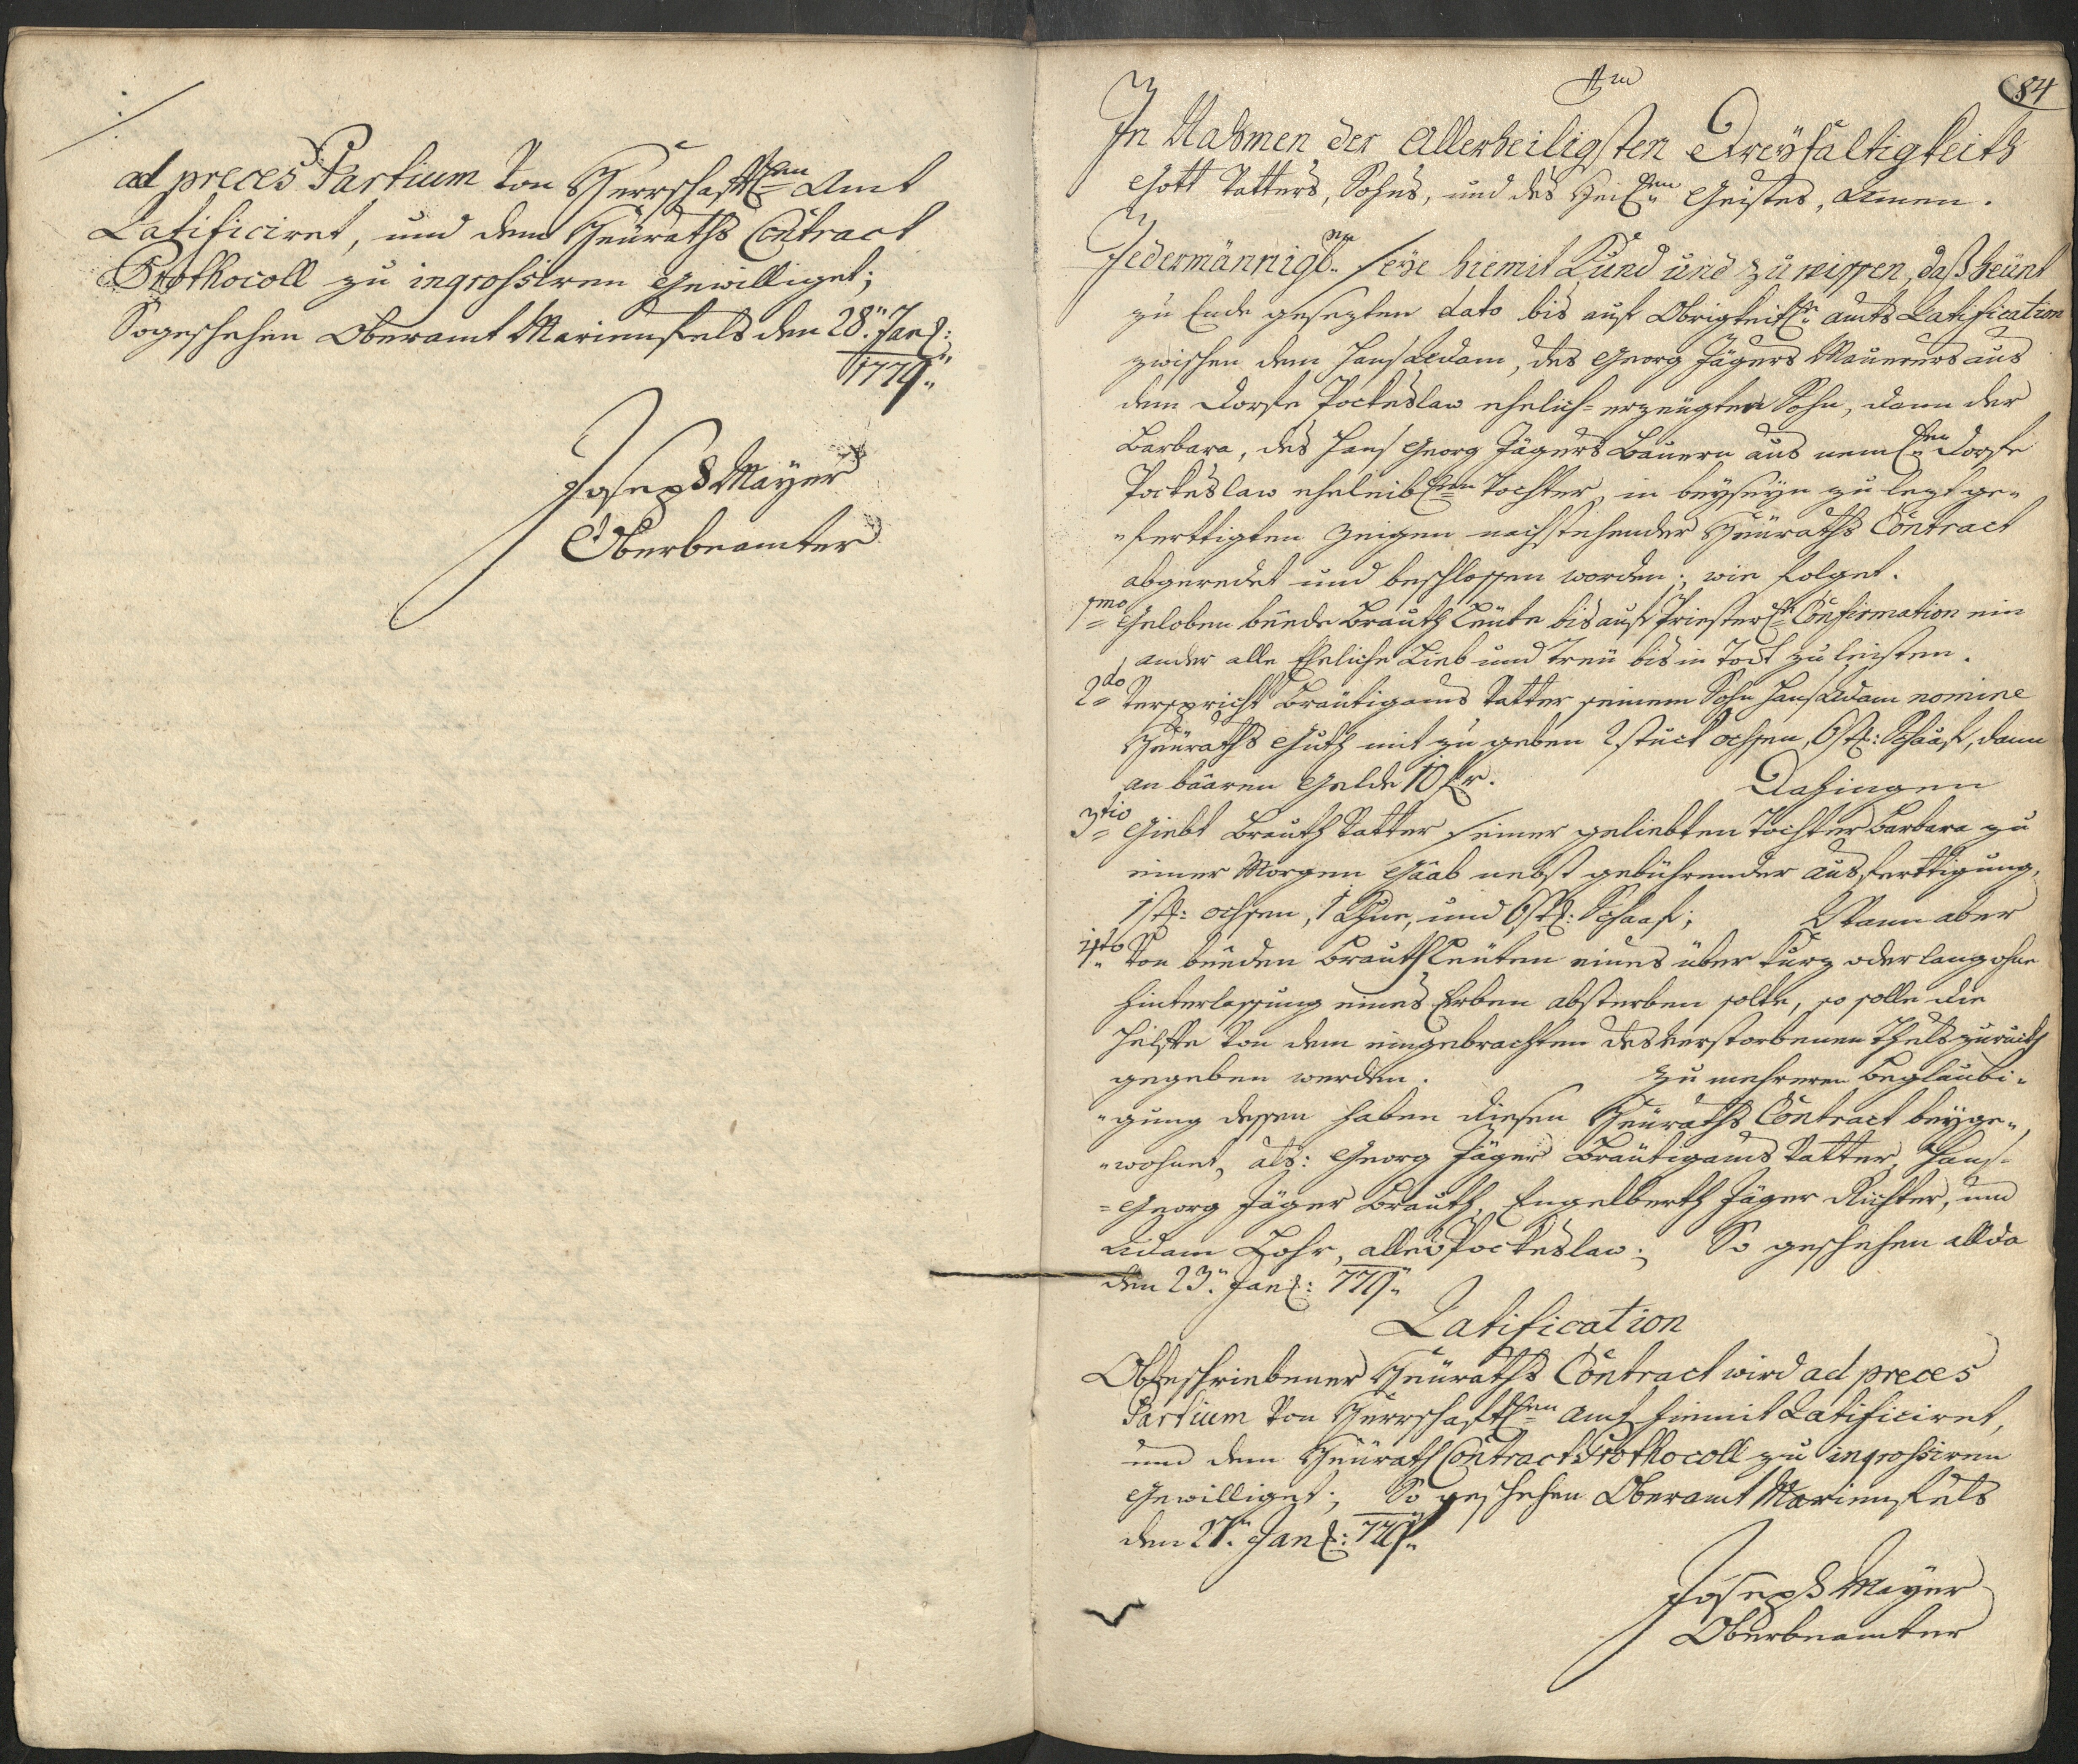 ad preces Partium Von Herrschafftl(en) Amt
Ratificiret, und dem Heüraths Contract
Prothocoll zu ingrossiren Gewilliget;
So geschehen Oberamt Marienfels den 28. Jan(r):
1779.
Joseph Mäyer
Oberbeamter
84
In Nahmen der Allerheiligsten Dreyfaltigkeith
Gott Vatters, Sohns, und des Heil(gen) Geistes, Amen.
Jedermännigl(n) seye hiemit Kund und zu wissen, daß heünt
zu Ende gesezten dato bis auf Obrigkeitl(e) Amts Ratification
zwischen dem Hans Adam, des Georg Jägers Mauerers aus
dem Dorfe Pockeslaw ehelich= erzeügten Sohn, dann der
Barbara, des Hans Georg Jägers Bauern aus neml(en) Dorfe
Pockeslaw eheleibl(en) Tochter, in beyseyn zu lezt ge=
=ferttigten Zeigen nachstehender Heüraths Contract
abgeredet und beschlossen worden; wie folget.
1mo Geloben beede Brauth Leüte bis auf Priesterl(e) Confirmation ein
ander alle Eheliche Lieb und Treü bis in Todt zu leisten.
2do Verspricht Bräutigams Vatter seinem Sohn Hans Adam nomine
Heüraths Guth mit zu geben 2 stuck ochsen, 6 st(k): Schaaf, dann
an baaren Gelde 10 fl.                Dahingen
3tio Giebt Brauth Vatter seiner geliebten Tochter Barbara zu
einer Morgen Gaab nebst gebührender Ausferttigung,
1 st(k): ochsen, 1 Khue, und 6 st(k): Schaaf;       Wann aber
4to Von beeden Brauth Leüten eines über kurz oder lang ohne
Hinterlassung eines Erben absterben solte, so solle die
Helfte Von dem eingebrachten des verstorbenen Theils zuruckh
gegeben werden.          Zu mehreren Beglaubi=
=gung dessen haben diesen Heüraths Contract beyge=
=wohnet, als: Georg Jäger Bräutigams Vatter, Hans=
=Georg Jäger Brauth, Engelberth Jäger Richter, und
Adam Lohr, alle v Pockeslaw;    So geschehen allda
den 23. Jan(r): 779.
Ratification
Obbeschriebener Heüraths Contract wird ad preces
Partium Von Herrschafftl(en) Amt hiemit Ratificiret,
und dem Heürath Contract Prothocoll zu ingrossiren
Gewilliget;    So geschehen Oberamt Marienfels
den 27. Jan(r): 779.
Joseph Mäyer
Oberbeamter